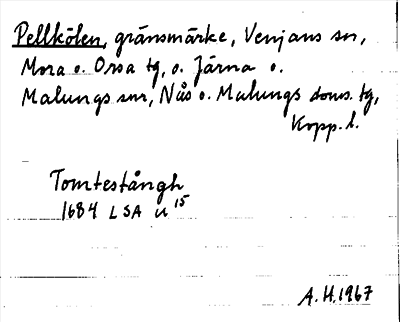 Pellkölen, gränsmärke, Venjans sn,
Mora o. Orsa tg, o. Järna o.
Malungs snr, Nås o. Malungs doms. tg,
Kopp. l.
Tomtestångh
1684 LSA U 15
A.H.1967